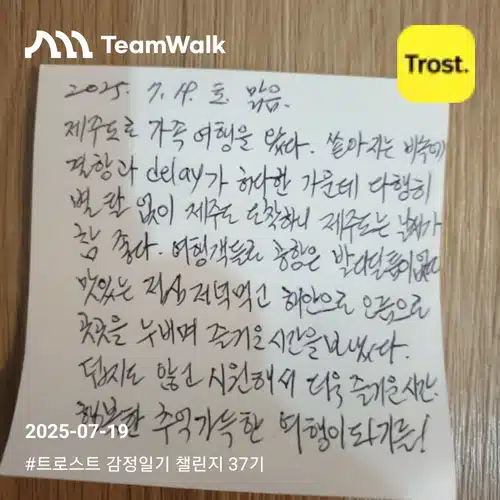 TeamWalk
Trost.
2025. 7. 19. 토. 맑음.
제주도로 가족여행을 왔다. 쏟아지는 비속에
결항과 delay가 허다한 가운데 다행히
별 탈 없이 제주도 도착하니 제주도는 날씨가
참 좋다. 여행객들로 공항은 발 디딜 틈이 없다
맛있는 점심 저녁먹고 해안으로 오름으로
곳곳을 누비며 즐거운 시간을 보냈다.
덥지도 않고 시원해서 더욱 즐거운 시간.
행복한 추억가득한 여행이 되기를!
2025-07-19
#트로스트 감정일기 챌린지 37기